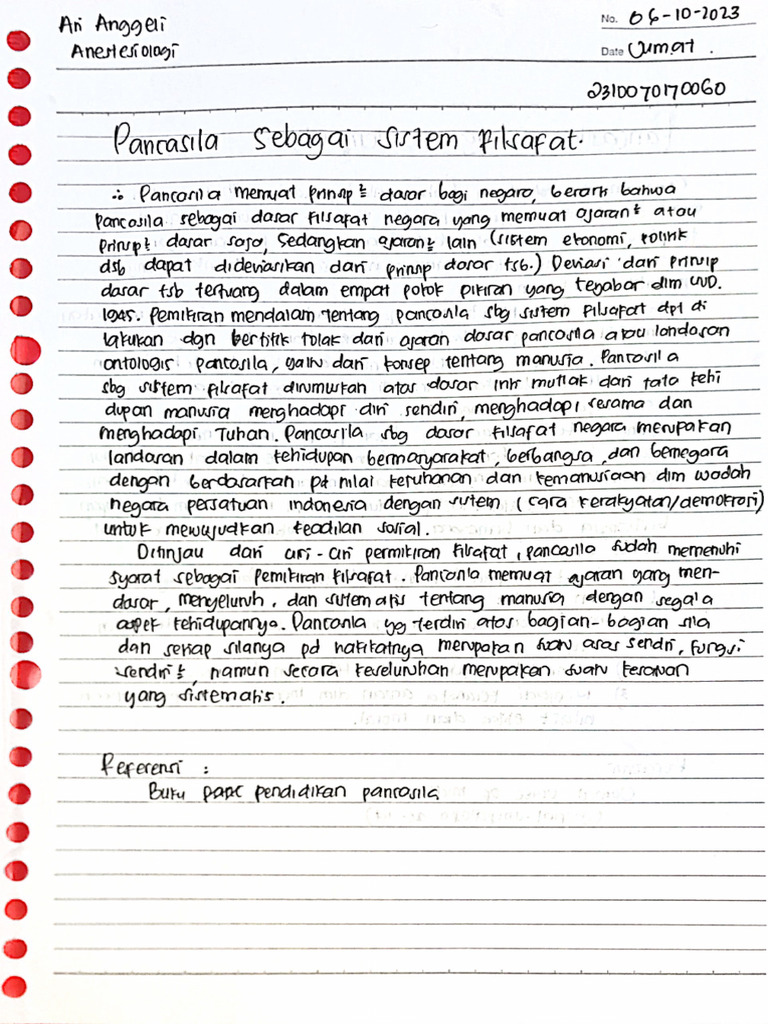 Ari Anggeli
No. 06-10-2023
Anestesiologi
Date Jumat.
2310070170060
Pancasila sebagai sistem filsafat.
∴ Pancasila memuat prinsip² dasar bagi negara, berarti bahwa
pancasila sebagai dasar filsafat negara yang memuat ajaran² atau
prinsip² dasar saja, sedangkan ajaran² lain (sistem ekonomi, politik
dsb dapat dideviasikan dari prinsip dasar tsb.) Deviasi dari prinsip
dasar tsb tertuang dalam empat pokok pikiran yang terjabar dlm UUD.
1945. Pemikiran mendalam tentang pancasila sbg sistem filsafat dpt di
lakukan dgn bertitik tolak dari ajaran dasar pancasila atau landasan
ontologis pancasila, yaitu dari konsep tentang manusia. Pancasila
sbg sistem filsafat dirumuskan atas dasar inti mutlak dari tata kehi
dupan manusia menghadapi diri sendiri, menghadapi sesama dan
menghadapi Tuhan. Pancasila sbg dasar filsafat negara merupakan
landasan dalam kehidupan bermasyarakat, berbangsa, dan bernegara
dengan berdasarkan pd nilai ketuhanan dan kemanusiaan dlm wadah
negara persatuan indonesia dengan sistem (cara kerakyatan/demokrasi)
untuk mewujudkan keadilan sosial.
Ditinjau dari ciri-ciri permikiran filsafat, pancasila sudah memenuhi
syarat sebagai pemikiran filsafat. Pancasila memuat ajaran yang men-
dasar, menyeluruh, dan sistematis tentang manusia dengan segala
aspek kehidupannya. Pancasila yg terdiri atas bagian-bagian sila
dan setiap silanya pd hakikatnya merupakan suatu asas sendiri, fungsi
sendiri², namun secara keseluruhan merupakan suatu kesatuan
yang sistematis.
Referensi :
Buku papc pendidikan pancasila